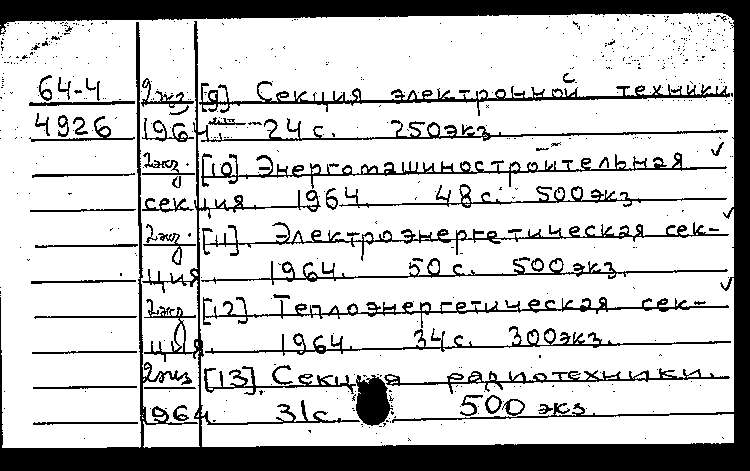 64-4 2экз [9]. Секция электронной техники
4926 1964. 24 с. 250экз.
2экз. [10]. Энергомашиностроительная
секция. 1964. 48 с. 500экз.
2экз. [11]. Электроэнергетическая сек-
ция. 1964. 50 с. 500экз.
2экз [12]. Теплоэнергетическая сек-
ция. 1964. 34 с. 300экз.
2экз [13]. Секция радиотехники.
1964. 31с. 500 экз.